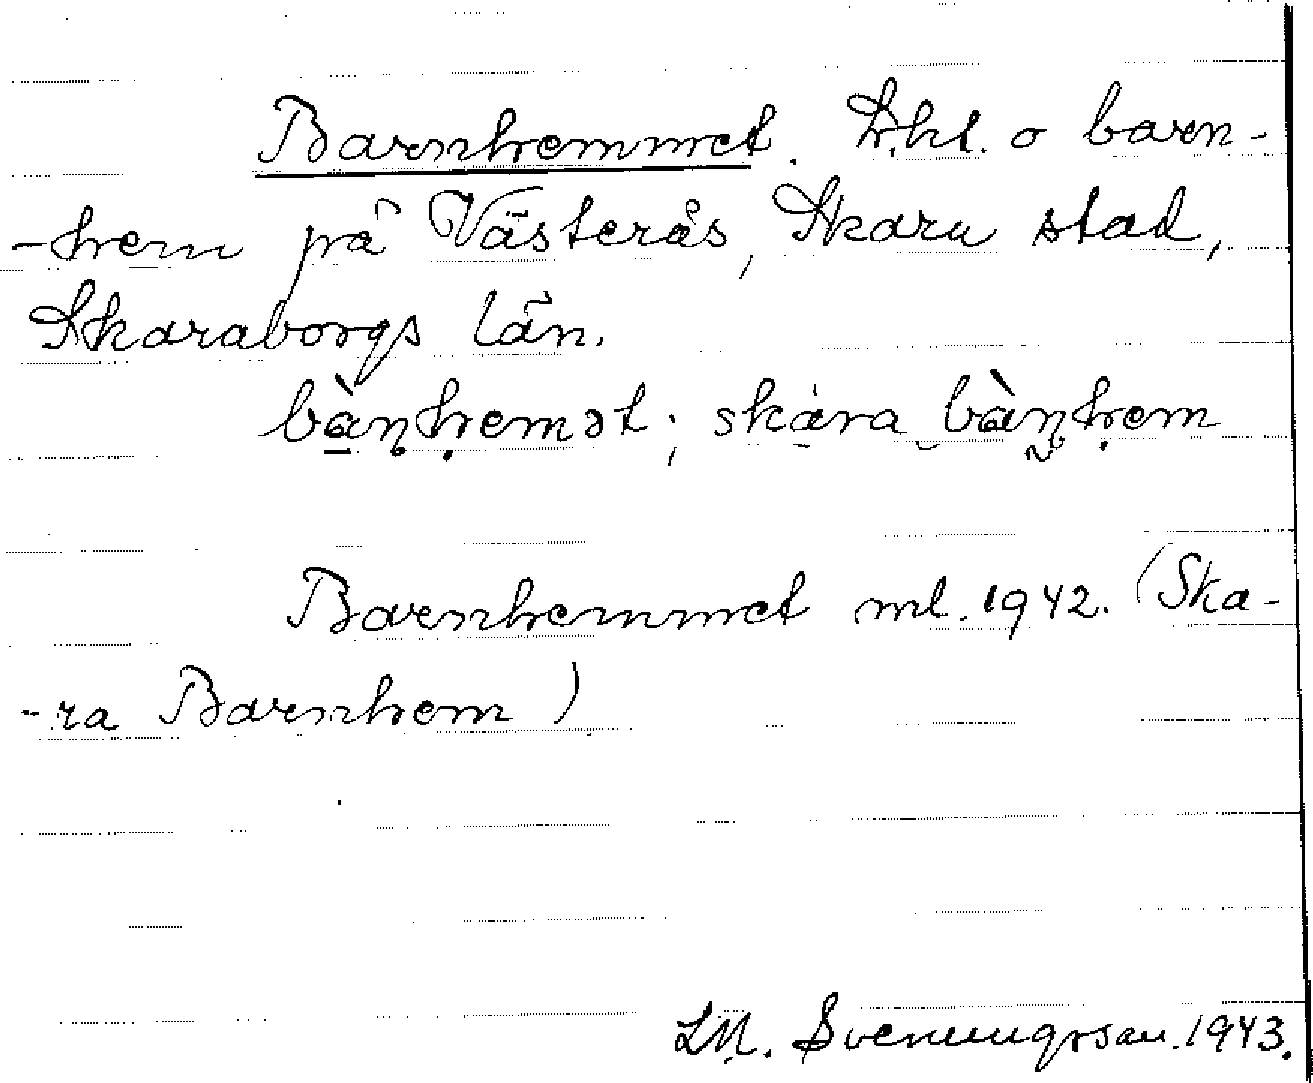 Barnhemmet. Lht. o barn-
-hem på Västerås, Skara stad,
Skaraborgs län.
bàṇhemət; skara bàṇhem
Barnhemmet ml. 1942. (Ska-
-ra Barnhem)
Svenungsson. 1943.